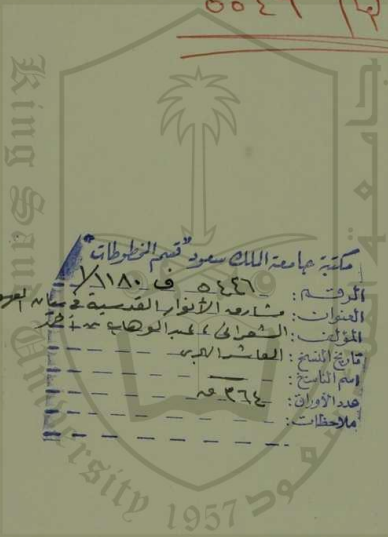 ٥٥٤٦
King Saud University
1957
مكتبة جامعة الملك سعود "قسم المخطوطات"
الرقم: ٥٤٤٦ ف ١١٨٠/١
العنوان: مشارق الأنوار القدسية في بيان العهود
المؤلف: الشعراني، عبد الوهاب بن أحمد
تاريخ النسخ: العاشر الهجري
اسم الناسخ:
عدد الأوراق: ٣٦٤ ق
ملاحظات: